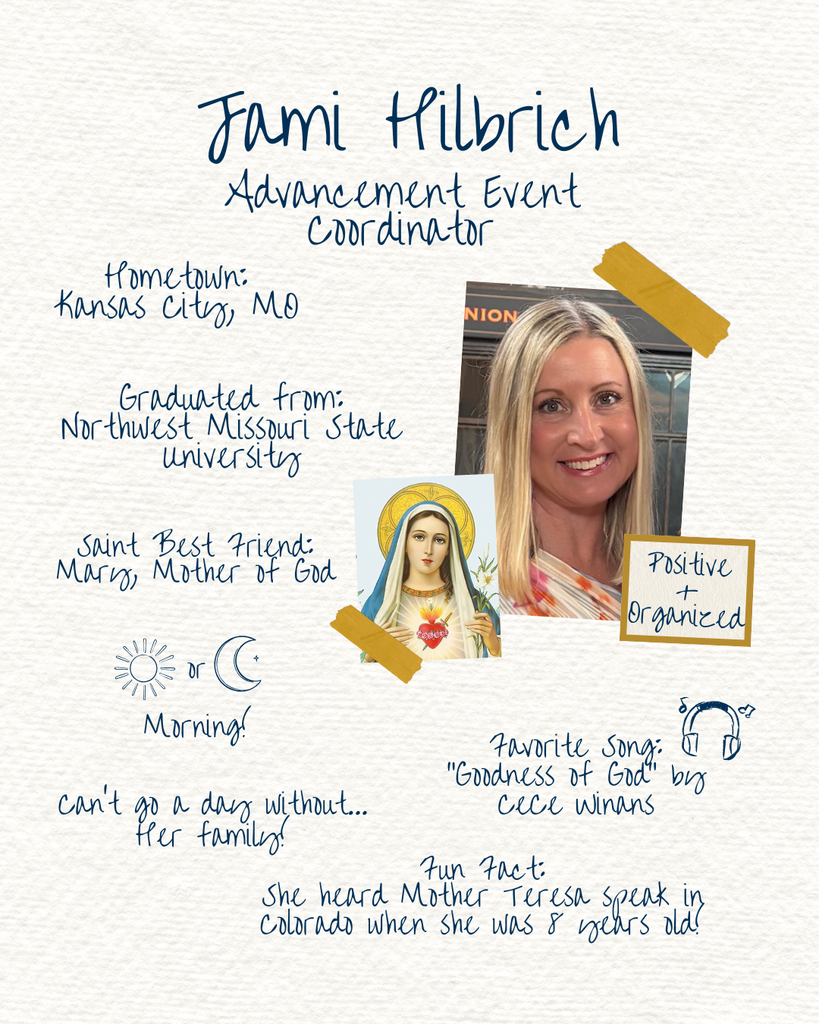 Jami Hilbrich
Advancement Event
Coordinator
Hometown:
Kansas City, MO
NION
Graduated from:
Northwest Missouri State
University
Saint Best Friend:
Mary, Mother of God
Positive
+
Organized
or
Morning!
Favorite Song:
"Goodness of God" by
CeCe Winans
Can't go a day without...
Her family!
Fun Fact:
She heard Mother Teresa speak in
Colorado when she was 8 years old!